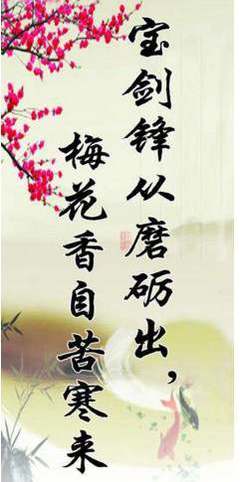 宝剑锋从磨砺出，
梅花香自苦寒来